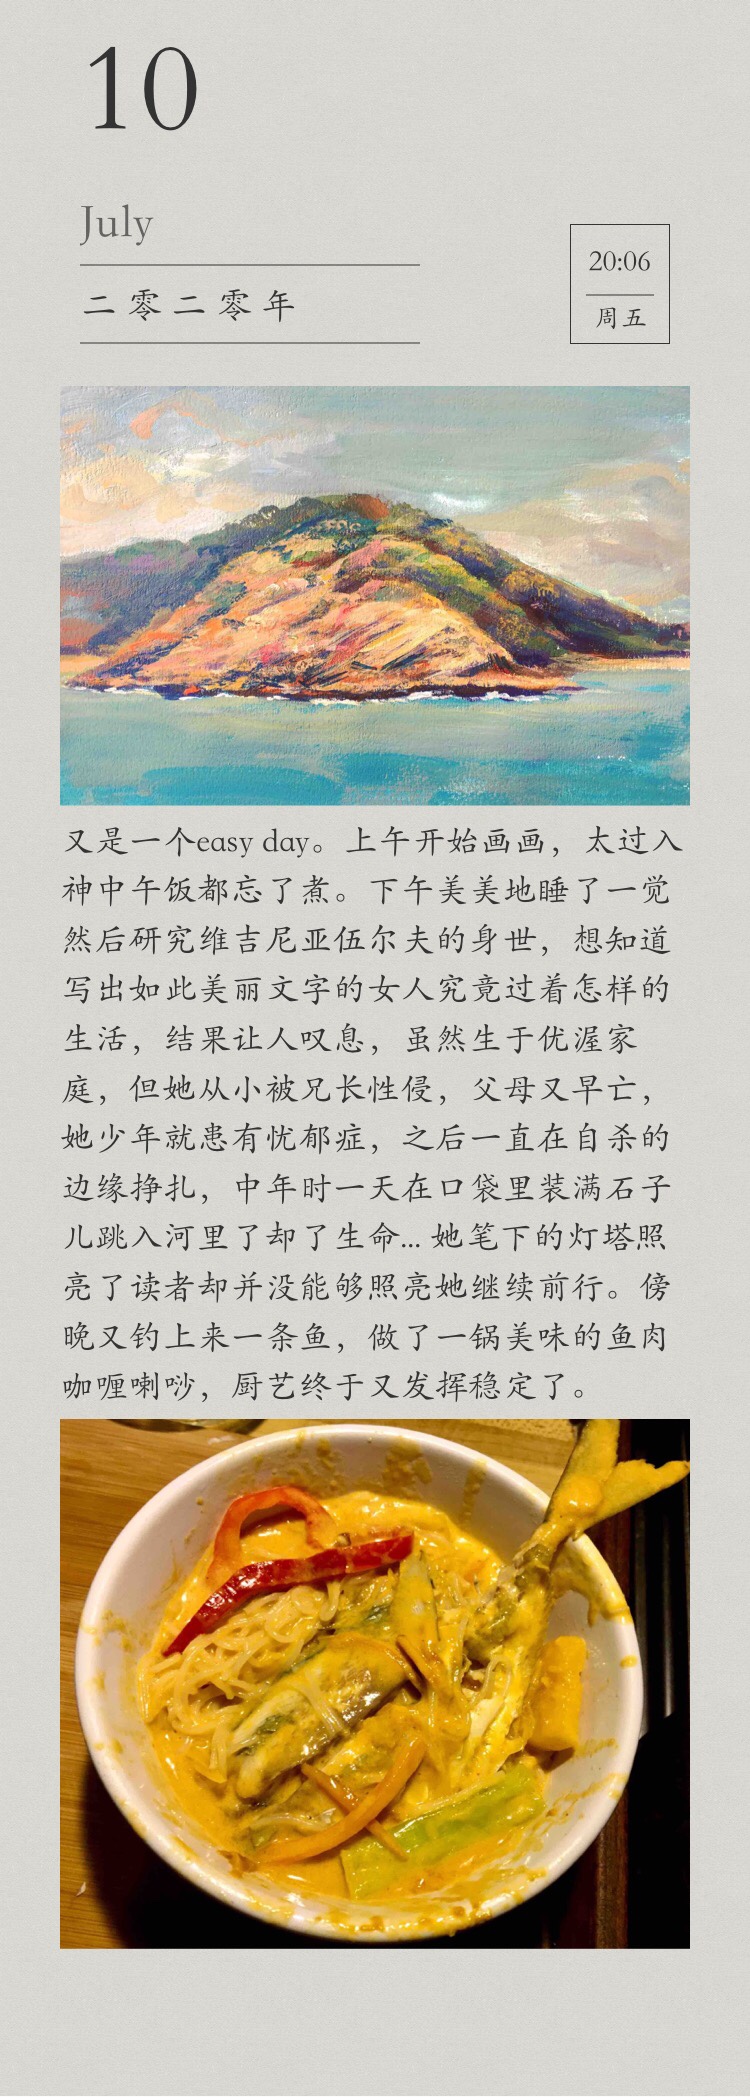 10
July
二零二零年
20:06
周五
又是一个easy day。上午开始画画，太过入
神中午饭都忘了煮。下午美美地睡了一觉
然后研究维吉尼亚伍尔夫的身世，想知道
写出如此美丽文字的女人究竟过着怎样的
生活，结果让人叹息，虽然生于优渥家
庭，但她从小被兄长性侵，父母又早亡，
她少年就患有忧郁症，之后一直在自杀的
边缘挣扎，中年时一天在口袋里装满石子
儿跳入河里了却了生命... 她笔下的灯塔照
亮了读者却并没能够照亮她继续前行。傍
晚又钓上来一条鱼，做了一锅美味的鱼肉
咖喱喇吵，厨艺终于又发挥稳定了。